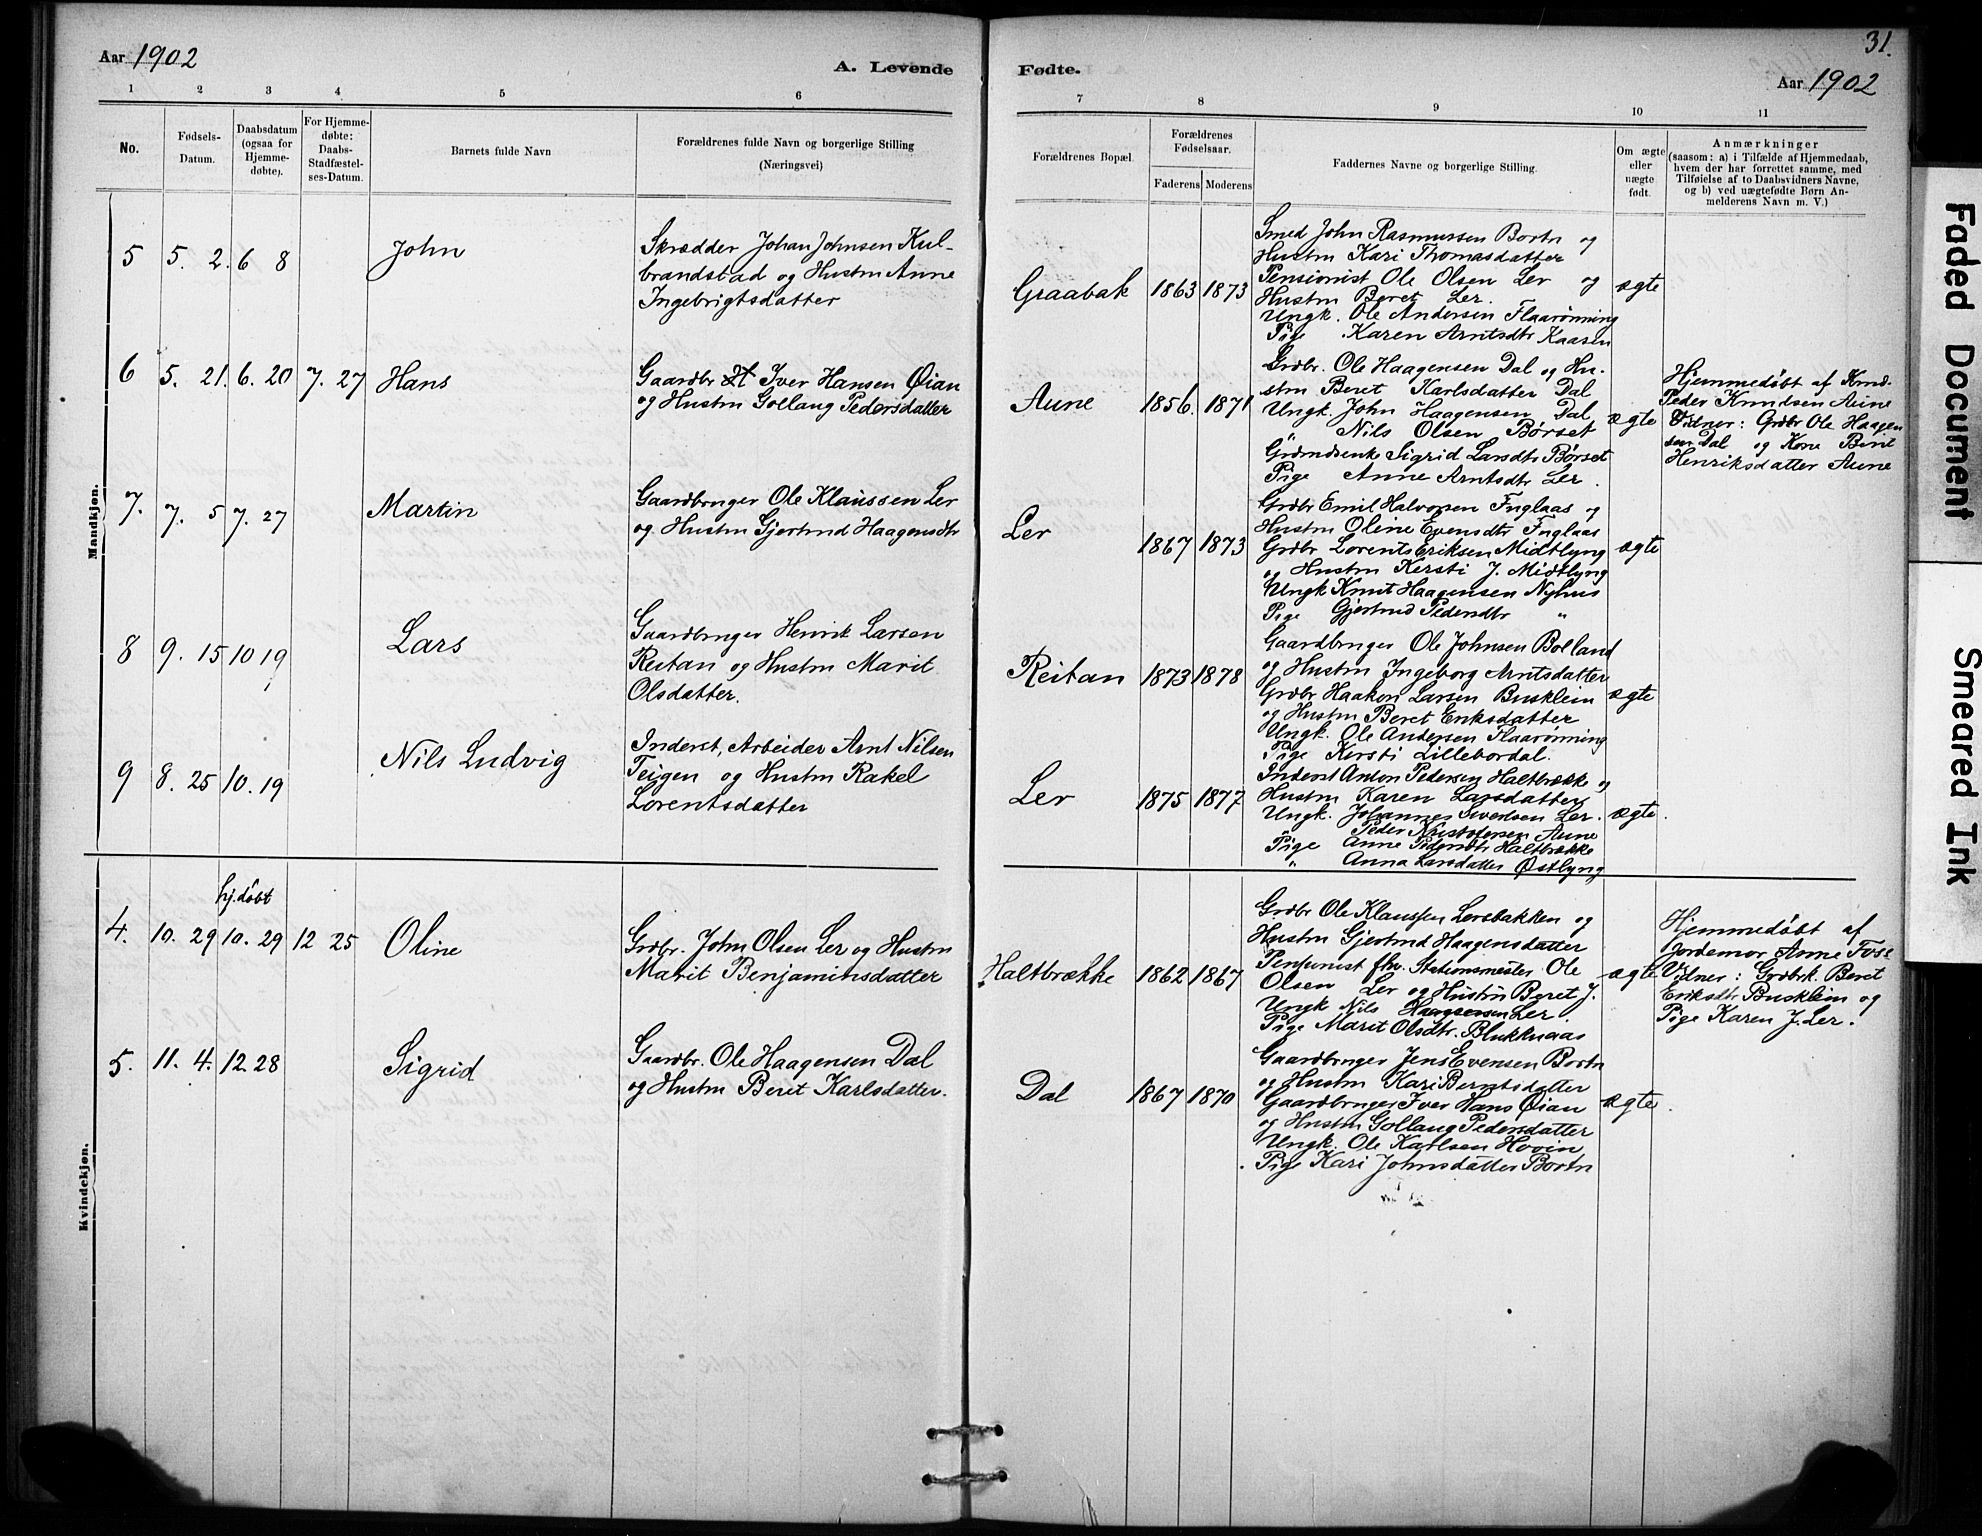 Aar 1902
A. Levende
1 2 3 4 5 6
No.
Fødsels-
Datum.
Daabsdatum
(ogsaa for
Hjemme-
døbte).
For Hjemme-
døbte:
Daabs-
Stadfæstel-
ses-Datum.
Barnets fulde Navn
Forældrenes fulde Navn og borgerlige Stilling
(Næringsvei)
Mandkjøn.
5 5. 2. 6 8 John
Skrædder Johan Johnsen Kul-
brandstad og Hustru Anne
Ingebrigtsdatter
6 5. 21. 6. 20 7. 27 Hans
Gaardbr Iver Hansen Øian
og Hustru Gollaug Pedersdatter
7. 7. 5 7. 27 Martin
Gaardbruger Ole Klaussen Ler
og Hustru Gjertrud Haagensdtr
8 9. 15 10 19 Lars
Gaardbruger Henrik Larsen
Reitan og Hustru Marit
Olsdatter.
9 8. 25 10. 19 Nils Ludvig
Inderst, Arbeider Arnt Nilsen
Teigen og Hustru Rakel
Lorentsdatter
Kvindekjøn.
hj.døbt
4. 10. 29 10. 29 12 25 Oline
Grdbr. John Olsen Ler og Hustru
Marit Benjaminsdatter
5. 11. 4. 12. 28 Sigrid
Gaardbr. Ole Haagensen Dal
og Hustru Beret Karlsdatter.
31.
Fødte.
Aar 1902
7 8 9 10 11
Forældrenes Bopæl.
Forældrenes
Fødselsaar.
Faderens Moderens
Faddernes Navne og borgerlige Stilling.
Om ægte
eller
uægte
født.
Anmærkninger
(saasom: a) i Tilfælde af Hjemmedaab,
hvem der har forrettet samme, med
Tilføielse af to Daabsvidners Navne,
og b) ved uægtefødte Børn An-
melderens Navn m. V.)
Graabak 1863 1873 ægte
Smed John Rasmussen Bortn og
Hustru Kari Thomasdatter
Pensionist Ole Olsen Ler og
Hustru Beret Ler.
Ungk. Ole Andersen Flaarønning
Pige Karen Arntsdtr Kaasen
Aune 1856. 1871 ægte
Grdbr. Ole Haagensen Dal og Hu-
stru Beret Karlsdatter Dal
Ungk. John Haagensen Dal
" Nils Olsen Børset
Grdmdenke Sigrid Larsdtr Børset
Pige Anne Arntsdtr Ler.
Hjemmedøbt af
Peder Knudsen Aune
Vidner: Grdbr Ole Haagen
sen Dal og Kone Berit
Henriksdatter Aune
Ler 1867 1873 ægte
Grdbr Emil Halvorsen Fuglaas og
Hustru Oline Evensdtr Fuglaas
Grdbr Lorents Eriksen Midtlyng
og Hustru Kersti J. Midtlyng
Ungk Knut Haagensen Nyhus
Pige Gjertrud Pedersdtr "
Reitan 1873 1878 ægte
Gaardbruger Ole Johnsen Bolland
og Hustru Ingeborg Arntsdatter
Grdbr Haakon Larsen Busklein
og Hustru Beret Eriksdatter
Ungk. Ole Andersen Flaarønning
Pige Kersti Lillebordal.
Ler 1875 1877 ægte.
Inderst Anton Pedersen Haltbrække og
Hustru Karen Larsdatter
Ungk. Johannes Sivertsen Ler.
" Peder Aune
Pige Anne Pedersdtr Haltbrække
" Anna Larsdatter Østlyng
Haltbrække 1862 1867 ægte
Grdbr Ole Klaussen Lersbakken og
Hustru Gjertrud Haagensdatter
Pensionist fhv. Stationsmester Ole
Olsen Ler og Hustru Beret J.
Ungk Nils Haagensen Ler.
Pige Marit Olsdtr. Blukkuaas
Hjemmedøbt af
Jordemor Anne Foss
Vidner: Grdbrk. Beret
Eriksdtr Busklein og
Pige Karen J. Ler.
Dal 1867 1870 ægte.
Gaardbruger Jens Evensen Bortn
og Hustru Kari Berntsdatter
Gaardbruger Iver Hans Øian
og Hustru Gollaug Pedersdatter
Ungk. Ole Karlsen Hovin
Pige Kari Johnsdatter Bortn
Faded Document
Smeared Ink